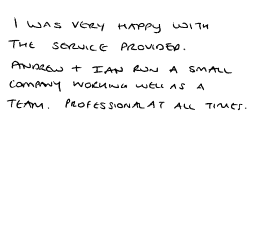 I WAS VERY HAPPY WITH
THE SERVICE PROVIDER.
ANDREW + IAN RUN A SMALL
COMPANY WORKING WELL AS A
TEAM. PROFESSIONAL AT ALL TIMES.